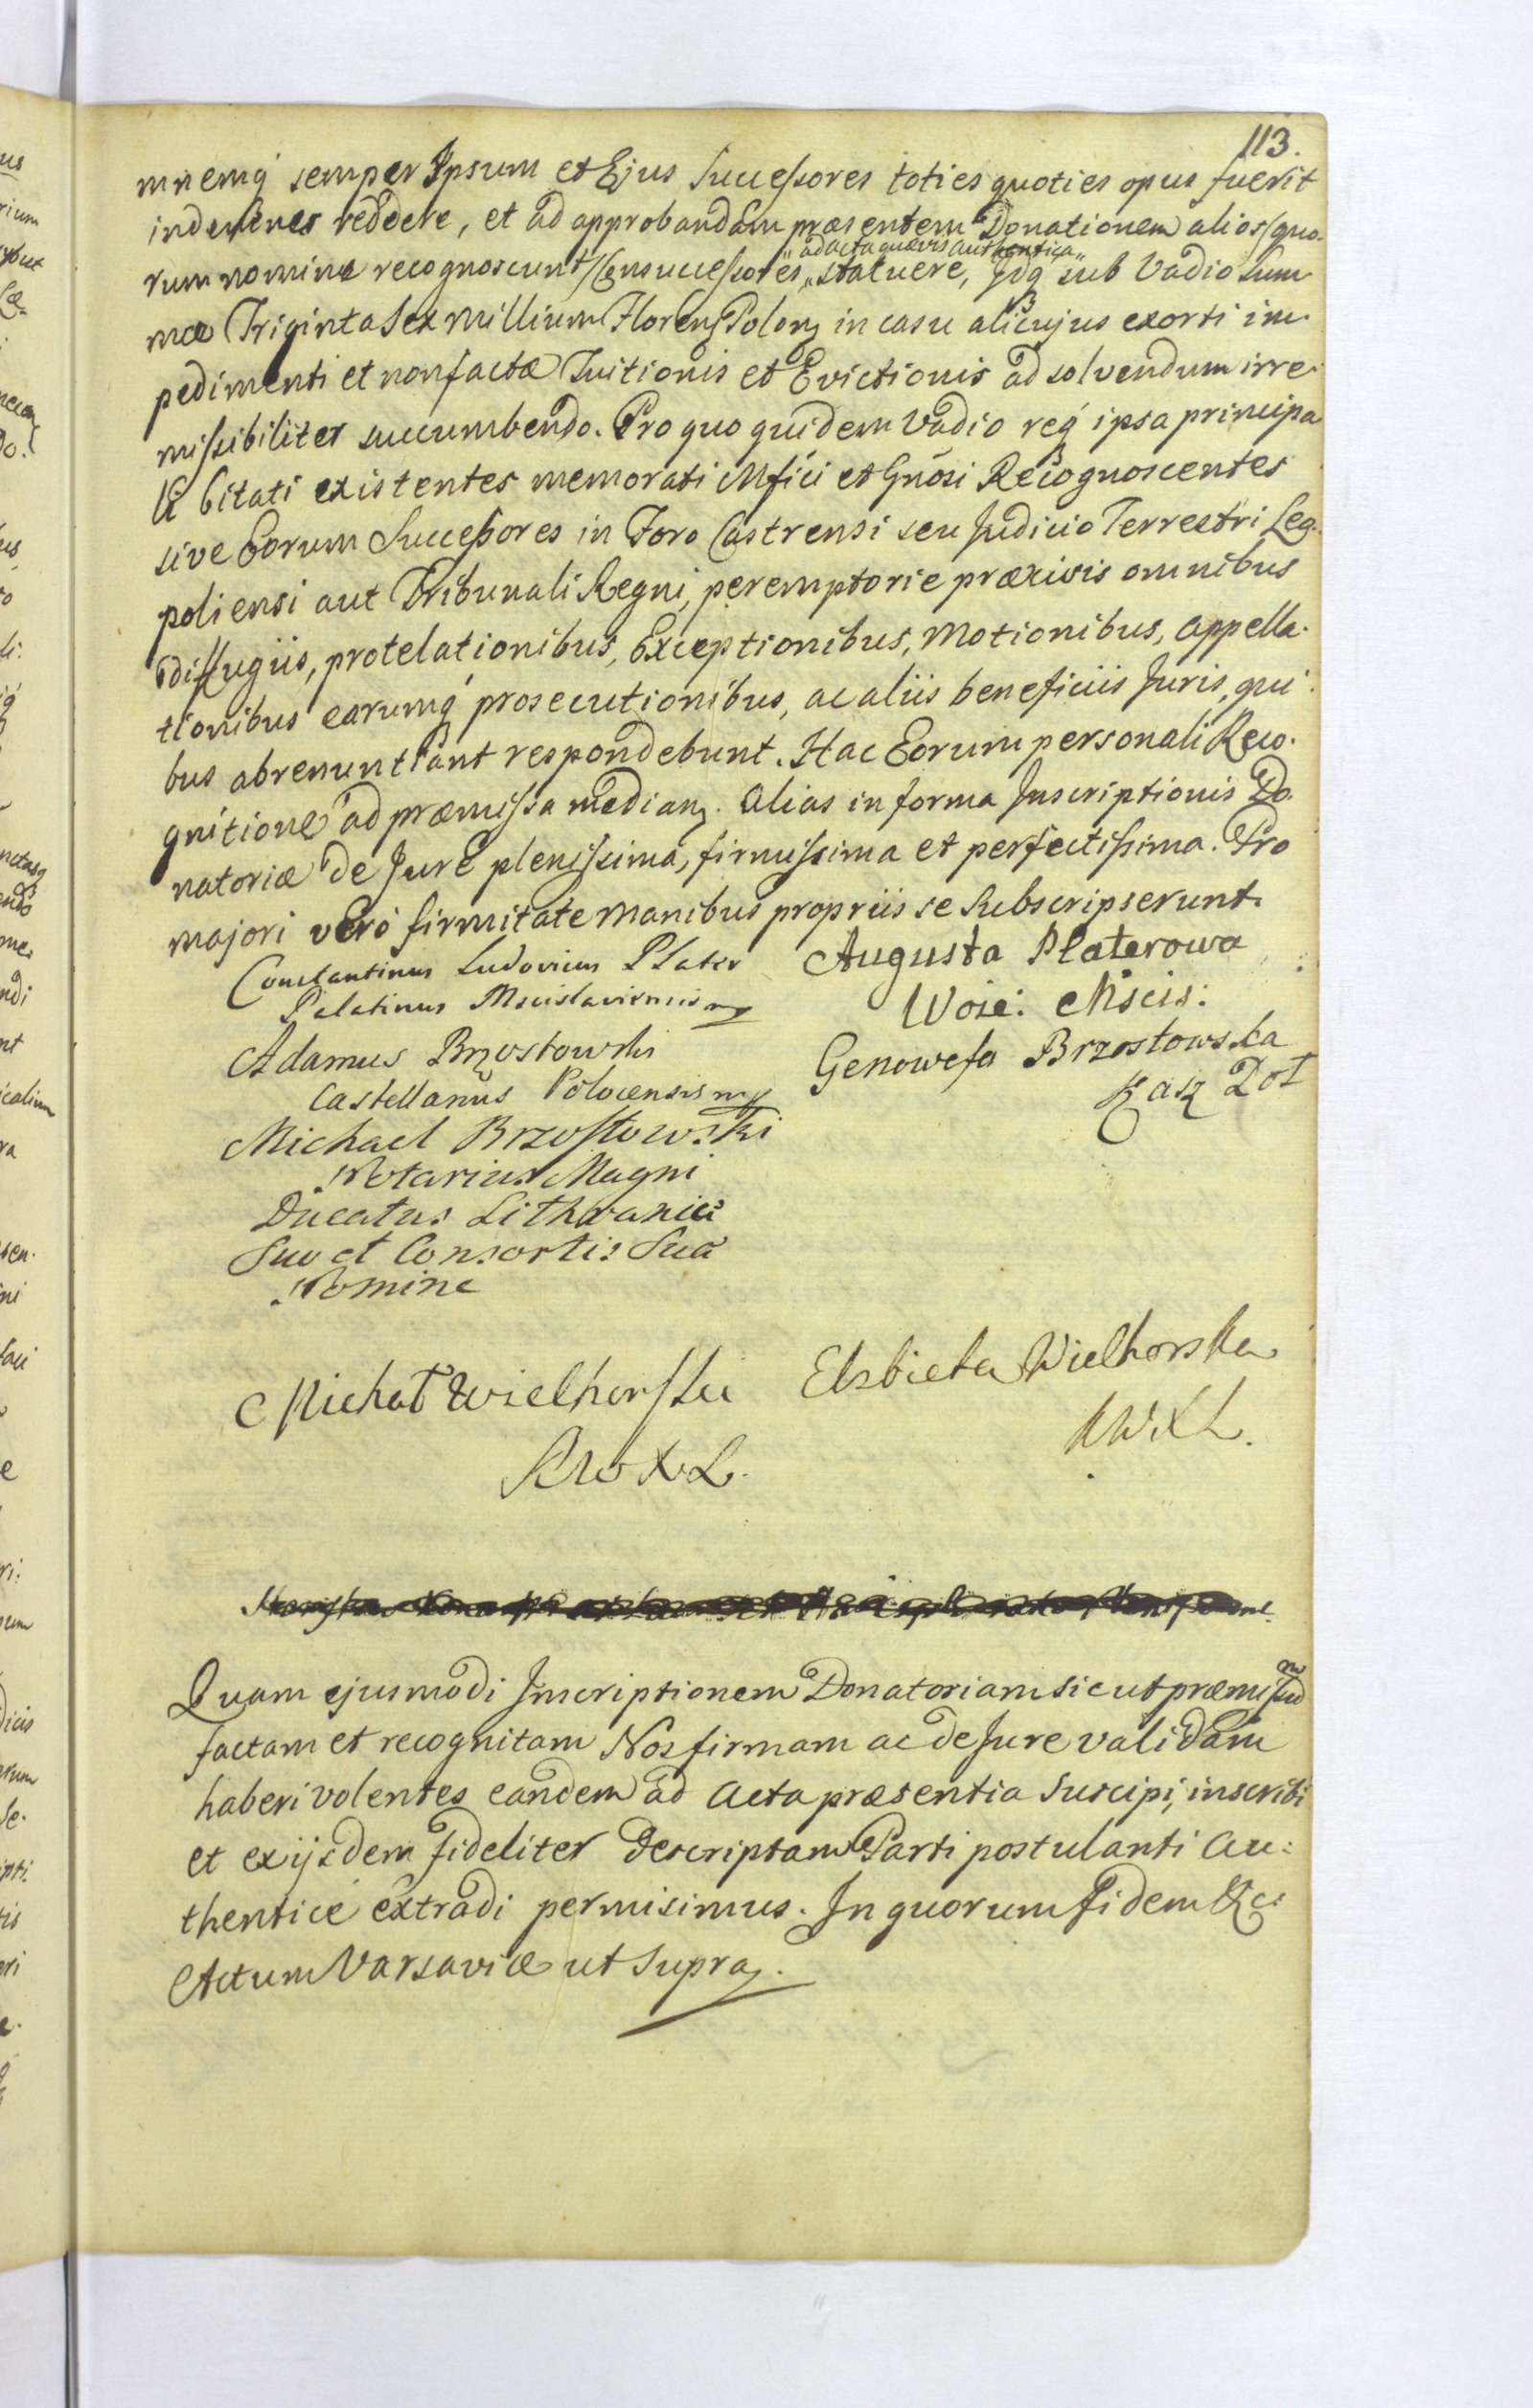 113.
mnemq́ semper Ipsum et Ejus Successores toties quoties opus fuerit
indemnes reddere, et ad approbandam præsentem Donationem alios (quo-
"ad acta quævis authentica"
rum nomine recognoscunt) Consuccessores, statuere, Idq́ sub Vadio Sum-
mæ Triginta Sex Millium Floren Polon in casu alicujus exorti im-
pedimenti et non factæ Tuitionis et Evictionis ad solvendum irre-
missibiliter succumbendo. Pro quo quidem Vadio req́ ipsa principa
li Citati existentes memorati Mfici et Gnosi Recognoscentes
sive Eorum Successores in Foro Castrensi seu Judicio Terrestri Leo-
poliensi aut Tribunali Regni, peremptorie præcisis omnibus
diffugiis, protelationibus, Exceptionibus, Motionibus, Appella-
tionibus earumq́ prosecutionibus, ac aliis beneficiis Juris, qui-
bus abrenuntiant respondebunt. Hac Eorum personali Reco-
gnitione ad præmissa median. Alias in forma Inscriptionis Do-
natoriæ de Jure plenissima, firmissima et perfectissima. Pro
majori vero firmitate Manibus propriis se Subscripserunt.
Constantinus Ludovicus Plater
Palatinus Mscislaviensis mp
Augusta Platerowa
Woie: Mscis:
Adamus Brzostowski
Castellanus Polocensis mp
Genowefa Brzostowska
Kasz Poł
Michael Brzostowski
Notarius Magni
Ducatus Lithvaniæ
Suo et Consortis Suæ
Nomine
Michał Wielhorski
KWXL.
Elzbieta Wielhorska
KWXL.
Quam ejusmodi Inscriptionem Donatoriam sic ut præmissum
factam et recognitam Nos firmam ac de Jure validam
haberi volentes eandem ad Acta præsentia Suscipi, inscribi
et ex ijsdem fideliter descriptam Parti postulanti Au:
thentice extradi permisimus. In quorum fidem &c:
Actum Varsaviæ ut Supra.